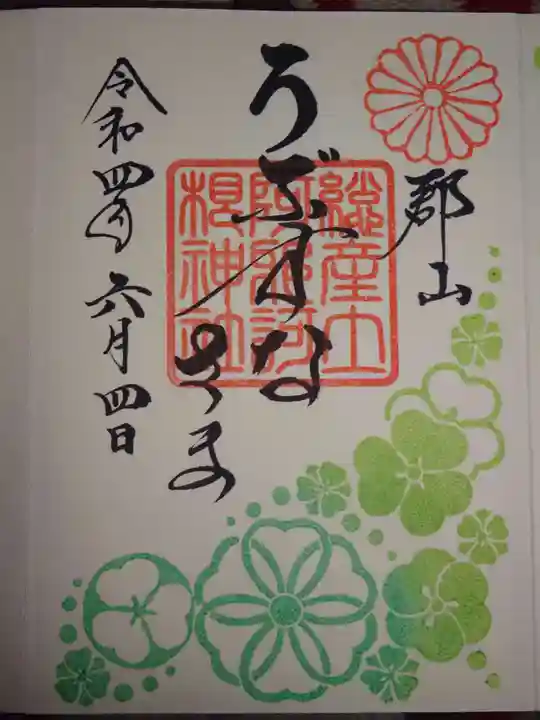 郡山
うぶすなさま
總産土
阿邪訶
根神社
令和四年
六月四日